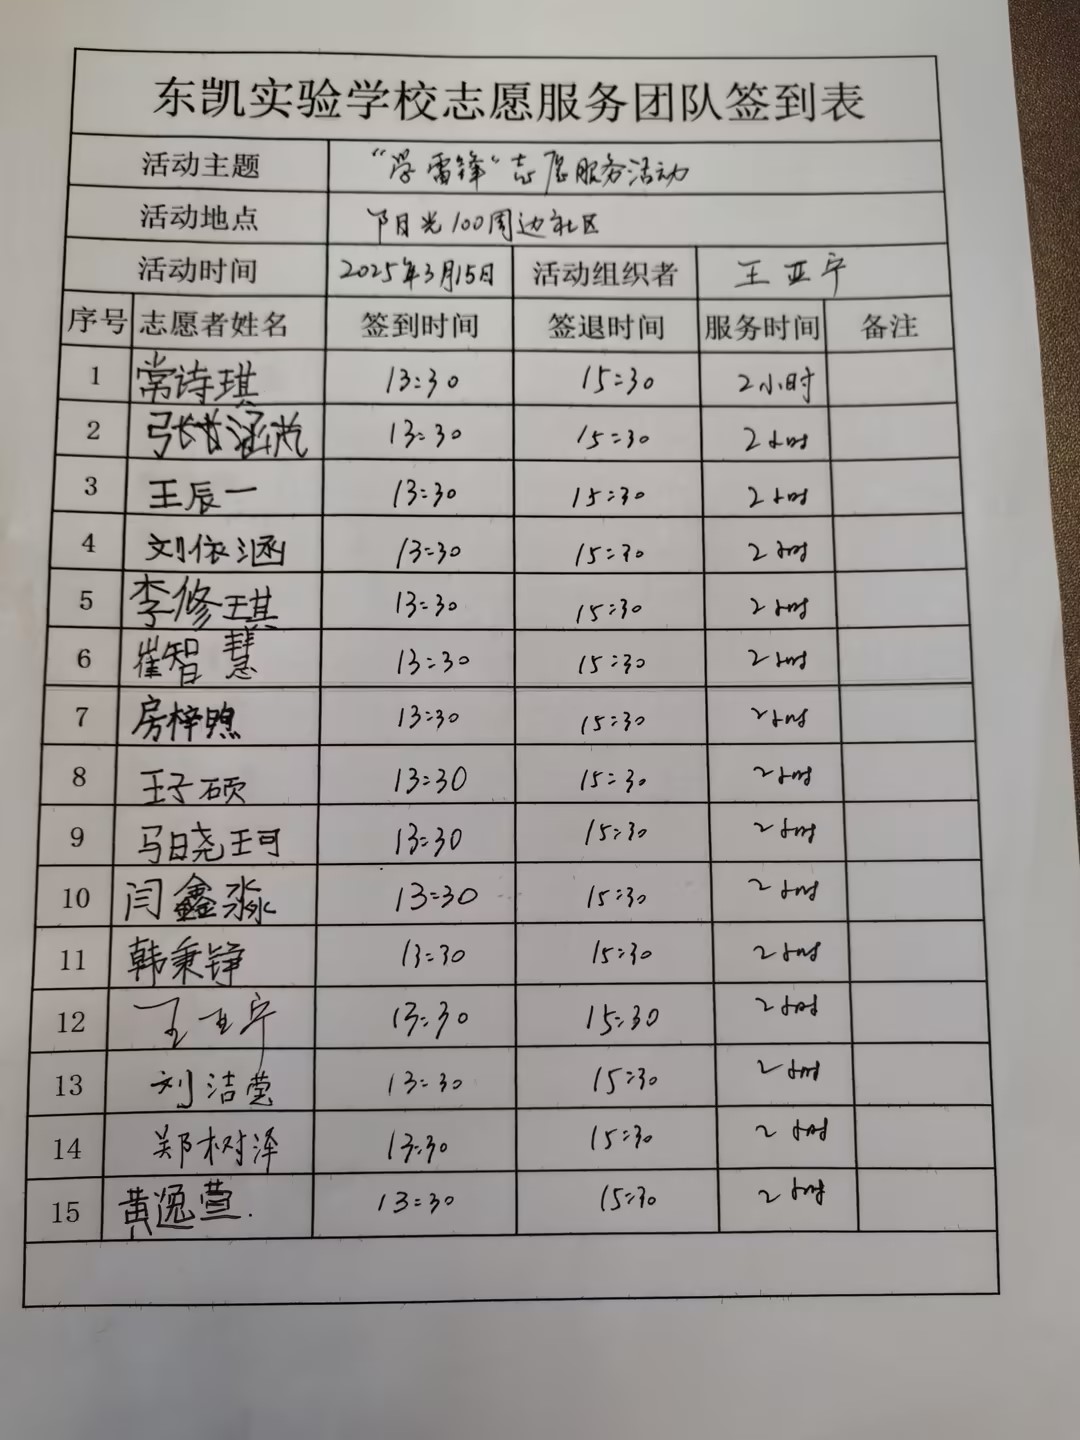 东凯实验学校志愿服务团队签到表
活动主题 “学雷锋”志愿服务活动
活动地点 阳光100周边社区
活动时间 2025年3月15日 活动组织者 王亚宁
序号 志愿者姓名 签到时间 签退时间 服务时间 备注
1 常诗琪 13:30 15:30 2小时
2 13:30 15:30 2小时
3 王辰一 13:30 15:30 2小时
4 刘依涵 13:30 15:30 2小时
5 李修琪 13:30 15:30 2小时
6 崔智慧 13:30 15:30 2小时
7 房梓煦 13:30 15:30 2小时
8 王子硕 13:30 15:30 2小时
9 马晓珂 13:30 15:30 2小时
10 闫鑫淼 13:30 15:30 2小时
11 韩秉铮 13:30 15:30 2小时
12 王亚宁 13:30 15:30 2小时
13 刘洁莹 13:30 15:30 2小时
14 郑树泽 13:30 15:30 2小时
15 黄逸萱. 13:30 15:30 2小时